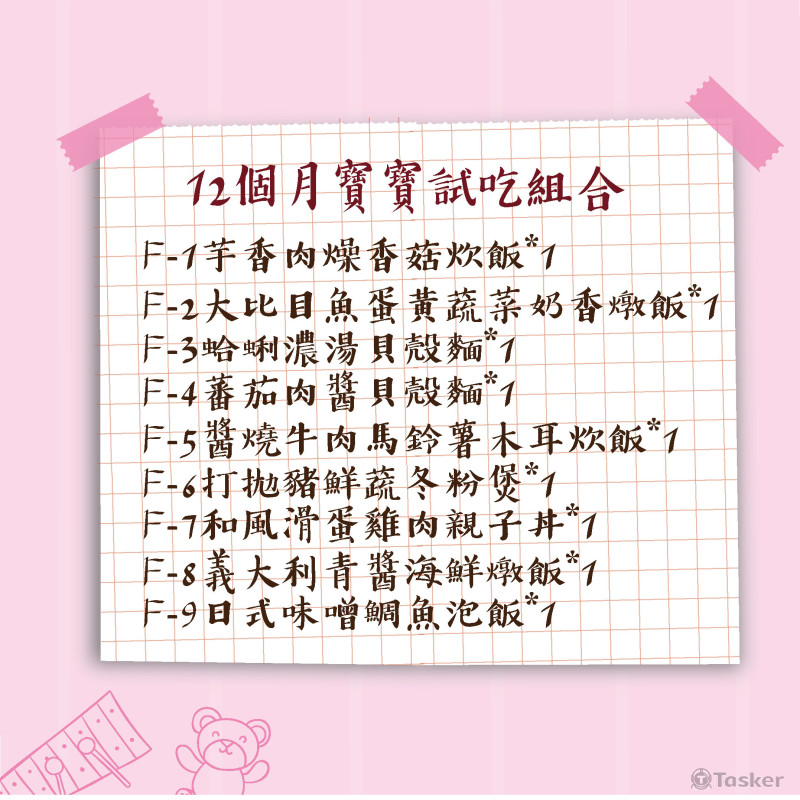 12個月寶寶試吃組合
F-1芋香肉燥香菇炊飯*1
F-2大比目魚蛋黃蔬菜奶香燉飯*1
F-3蛤蜊濃湯貝殼麵*1
F-4蕃茄肉醬貝殼麵*1
F-5醬燒牛肉馬鈴薯木耳炊飯*1
F-6打拋豬鮮蔬冬粉煲*1
F-7和風滑蛋雞肉親子丼*1
F-8義大利青醬海鮮燉飯*1
F-9日式味噌鯛魚泡飯*1
Tasker